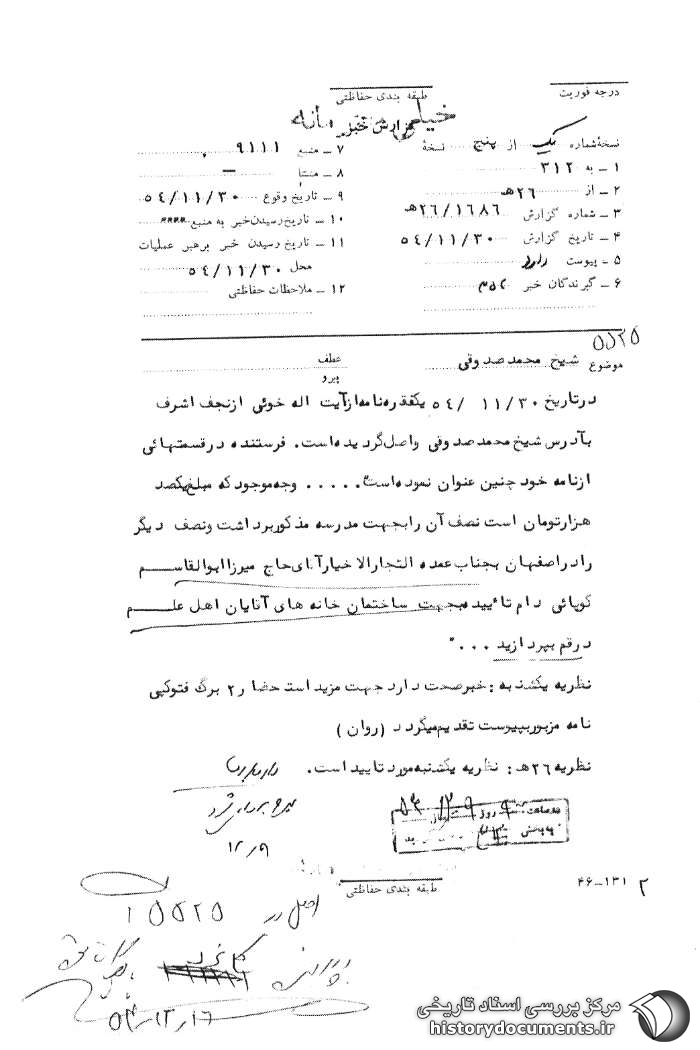 درجه فوریت
طبقه بندی حفاظتی
خیلی محرمانه
گزارش خبر
نسخهٔ شماره یک از پنج نسخهٔ
۱ ـ به ۳۱۲
۲ ـ از ۲۶ھ
۳ ـ شماره گزارش ۲۶/۱۶۸۶ھ
۴ ـ تاریخ گزارش ۵٤/۱۱/۳۰
۵ ـ پیوست دارد
۶ ـ گیرندگان خبر
۷ ـ منبع ۹۱۱۱
۸ ـ منشأ ـ
۹ ـ تاریخ وقوع ۵٤/۱۱/۳۰
۱۰ ـ تاریخ رسیدن خبر به منبع ****
۱۱ ـ تاریخ رسیدن خبر برهبر عملیات
محل ۵٤/۱۱/۳۰
۱۲ ـ ملاحظات حفاظتی
۵۵۲۵
موضوع شیخ محمد صدوقی
عطف
پیرو
درتاریخ ۵٤/۱۱/۳۰ یکفقره نامه از آیت اله خوئی ازنجف اشرف
بآدرس شیخ محمد صدوقی واصل گردیده است. فرستنده درقسمتهائی
ازنامه خود چنین عنوان نموده است "..... وجه موجود که مبلغ یکصد
هزارتومان است نصف آن رابجهت مدرسه مذکور برداشت ونصف دیگر
رادراصفهان بجناب عمده التجار الاخیار آقای حاج میرزا ابوالقاسم
کوپائی دام تائیده بجهت ساختمان خانه های آقایان اهل علم
درقم بپردازید ..."
نظریه یکشنبه : خبرصحت دارد جهت مزید استحضار ۲ برگ فتوکپی
نامه مزبور بپیوست تقدیم میگردد (روان)
نظریه ۲۶ھ : نظریه یکشنبه مورد تایید است.
۱۲/۹
طبقه بندی حفاظتی
۴۶-۱۳۱
۲
اصل در ۱۵۵۲۵
۵۴/۱۲/۱۶
مرکز بررسی اسناد تاریخی
historydocuments.ir